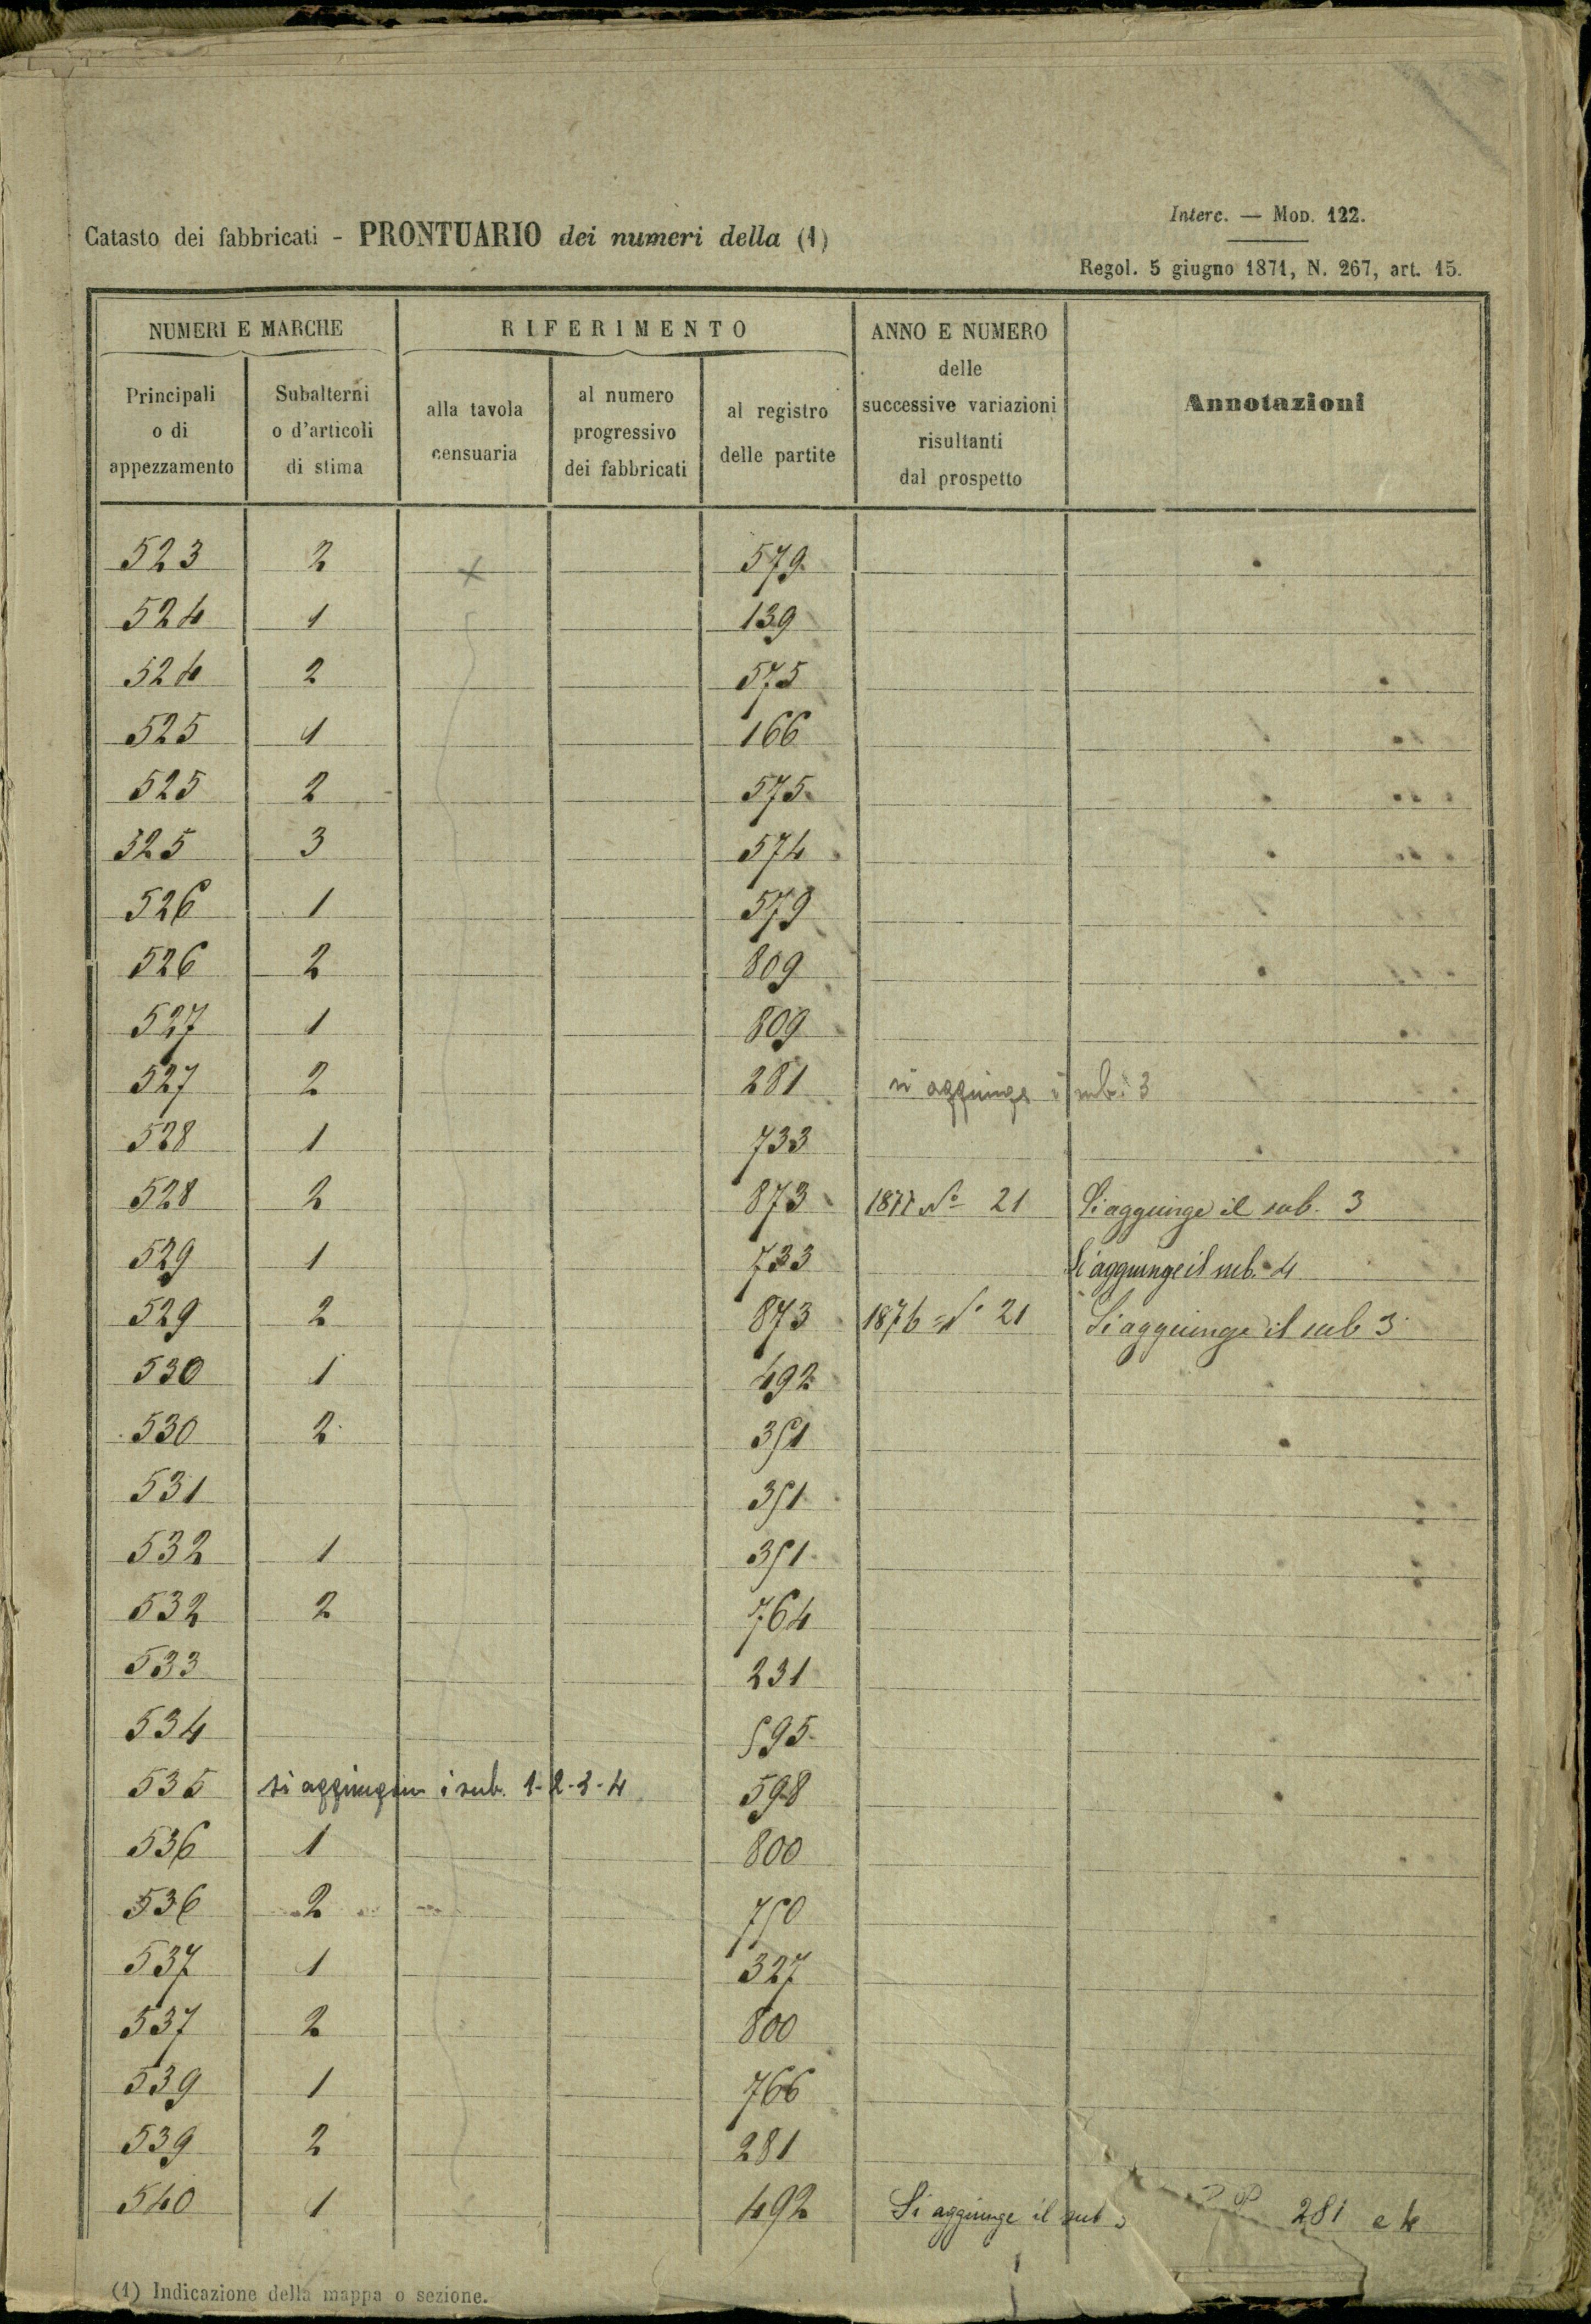 Interc. — Mod. 122.
Catasto dei fabbricati - PRONTUARIO dei numeri della (1)
Regol. 5 giugno 1871, N. 267, art. 15.
NUMERI E MARCHE
RIFERIMENTO
ANNO E NUMERO delle successive variazioni risultanti dal prospetto
Annotazioni
Principali o di appezzamento
Subalterni o d'articoli di stima
alla tavola censuaria
al numero progressivo dei fabbricati
al registro delle partite
523 2 579
524 1 139
524 2 575
525 1 166
525 2 575
525 3 574
526 1 579
526 2 809
527 1 809
527 2 281 si aggiunge i sub. 3
528 1 733
528 2 873 1877 No 21 Si aggiunge il sub. 3
529 1 733 Si aggiunge il sub. 4
529 2 873 1876 No 21 Si aggiunge il sub 3
530 1 492
530 2 351
531 351
532 1 351
532 2 764
533 231
534 595
535 si aggiungono i sub. 1-2-3-4 598
536 1 800
536 2 750
537 1 327
537 2 800
539 1 766
539 2 281
540 1 492 Si aggiunge il sub 281 e 4
(1) Indicazione della mappa o sezione.